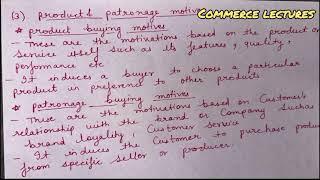 (3) product & patronage motives
Commerce lectures
* product buying motives
- These are the motivations based on the product or
Service itself such as its features, quality,
performance etc
- It induces a buyer to choose a particular
product in preference to other products
* patronage buying motives
- These are the motivations based on Customer's
relationship with the brand or Company Such as
brand loyality, Customer Service
- It induces the Customer to purchase product
from specific seller or producer.